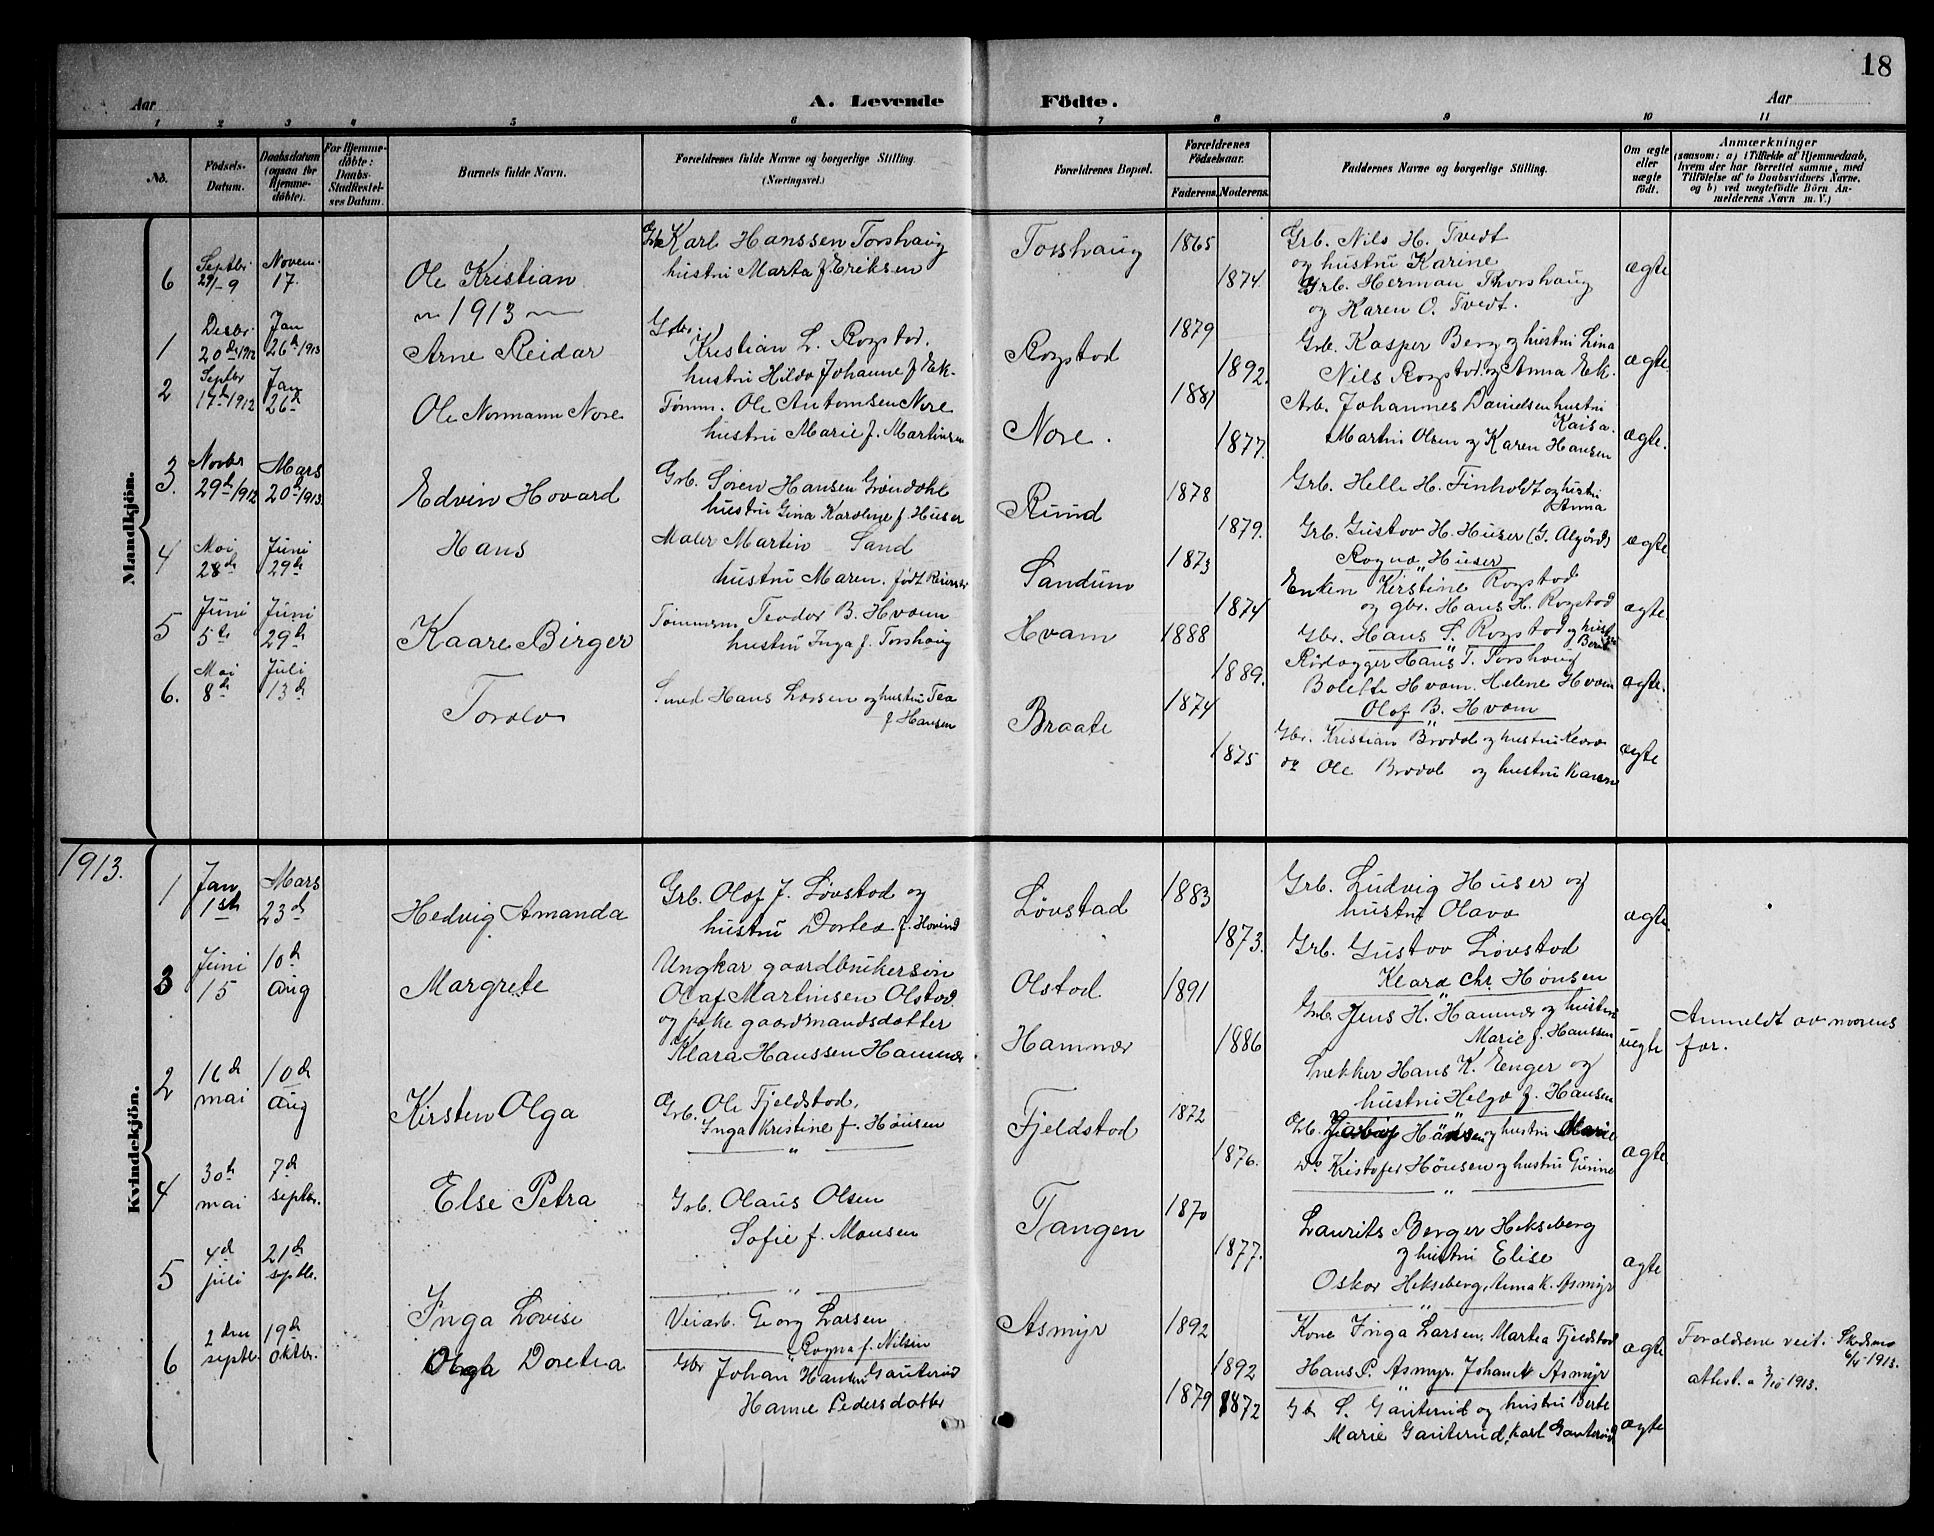 18
Aar
A. Levende Födte.
Aar
1 2 3 4 5 6 7 8 9 10 11
No.
Födsels-Datum.
Daabsdatum (ogsaa for Hjemme-döbte).
For Hjemme-döbte: Daabs-Stadfæstel-ses Datum.
Barnets fulde Navn.
Forældrenes fulde Navne og borgerlige Stilling.
(Næringsvei.)
Forældrenes Bopæl.
Forældrenes Födselsaar.
Faderens. Moderens.
Faddernes Navne og borgerlige Stilling.
Om ægte eller uægte födt.
Anmærkninger
(saasom: a) i Tilfælde af Hjemmedaab,
hvem der har forrettet samme, med
Tilföielse af to Daabsvidners Navne,
og b) ved uægtefödte Börn An-
melderens Navn m. V.)
Mandkjön.
6 Septbr. 29/-9 Novem. 17. Ole Kristian
Gbr Karl Hanssen Torshaug
hustru Marta f. Eriksen
Torshaug 1865 1874
Grb. Nils H. Tvedt
og hustru Karine
Grb. Herman Thorshaug
og Karen O. Tvedt.
ægte
1913
1 Desbr. 20de 1912 Jan 26de 1913 Arne Reidar
Gbr. Kristian L. Rogstad.
hustru Hilda Johanne f Ek.
Rogstad 1879 1892.
Grb. Kasper Berg og hustru Lina
Nils Rogstad og Anna Ek.
ægte
2 Septbr 17de 1912 Jan 26de Ole Normann Nore
Tømm. Ole Antonsen Nore
hustru Marie f. Martinsen
Nore. 1881 1877.
Arb. Johannes Danielsen hustru
Kaisa.
Martin Olsen og Karen Hansen
ægte.
3. Novbr 29de 1912 Mars 20de 1913 Edvin Hovard
Grb. Søren Hansen Grøndahl
hustru Gina Karoline f. Huser
Ruud 1878 1879.
Grb. Helle H. Finholdt og hustru
Anna
Grb. Gustav H. Huser
Ragna Huser
ægte
4 Mai 28de Juni 29de Hans
Maler Martin Sand
hustru Maren. født
Sandum 1873 1874
Enken Kirstine Rogstad
og gbr. Hans H. Rogstad
ægte
5 Juni 5te Juni 29de Kaare Birger
Tømmerm Teodor B. Hvam
hustru Inga f. Torshaug
Hvam 1888 1889.
Gbr. Hans S. Rogstad og hust
Hans T. Torshaug
Bolette Hvam. Helene Hvam
Olaf B. Hvam
ægte.
6. Mai 8de Juli 13de Torolv
Smed Hans Larsen og hustru Tea
f Hansen
Braate 1874 1875
Gbr. Kristian Brødal og hustru Klara
do Ole Brødal og hustru Karen
ægte
1913.
Kvindekjön.
1 Jan 1ste Mars 23de Hedvig Amanda
Grb. Olaf J. Løvstad og
hustru Dortea f. Hovind
Løvstad 1883 1873.
Grb. Ludvig Huser og
hustru Olava
Grb. Gustav Løvstad
Klara Chr. Hønsen
ægte
3 Juni 15 10de aug Margrete
Ungkar gaardbrukersøn
Olaf Martinsen Olstad
og pike gaardmandsdatter
Klara Hanssen Hammer
Olstad 1891
Hammer 1886
Grb. Jens H. Hammer og hustru
Marie f. Hanssen
Snekker Hans K. Enger og
hustru Helga f. Hansen
uegte
Anmeldt av morens
far.
2 16de mai 10de aug Kirsten Olga
Grb. Ole Fjeldstad.
Inga Kristine f. Hönsen
Fjeldstad 1872 1876.
Grb. Hønsen og hustru Marie
Do Kristofer Hönsen og hustru Gurine
ægte
4 30te mai 7de septbr. Else Petra
Grb. Olaus Olsen
Sofie f. Monsen
Tangen 1870 1877.
Laurits Berger Hekseberg
og hustru Elise
Oskar Hekseberg, Anna K. Asmyr
ægte
5 4de juli 21de septbr. Inga Lovise
Veiarb. Georg Larsen
Ragna f. Nilsen
Asmyr 1892 1892
Kone Inga Larsen, Martea Fjeldstad
Hans P. Asmyr. Johan Asmyr
ægte
Forældrene veit. Skedsmo
6/4-1913.
attest. 3/10 1913.
6 2den septbr. 19de oktbr. Olga Doretea
Gbr Johan Hansen Gauterud
Hanne Pedersdatter
1879 1872
Gb S. Gauterud og hustru Berte
Marie Gauterud, Karl Gauterud
ægte